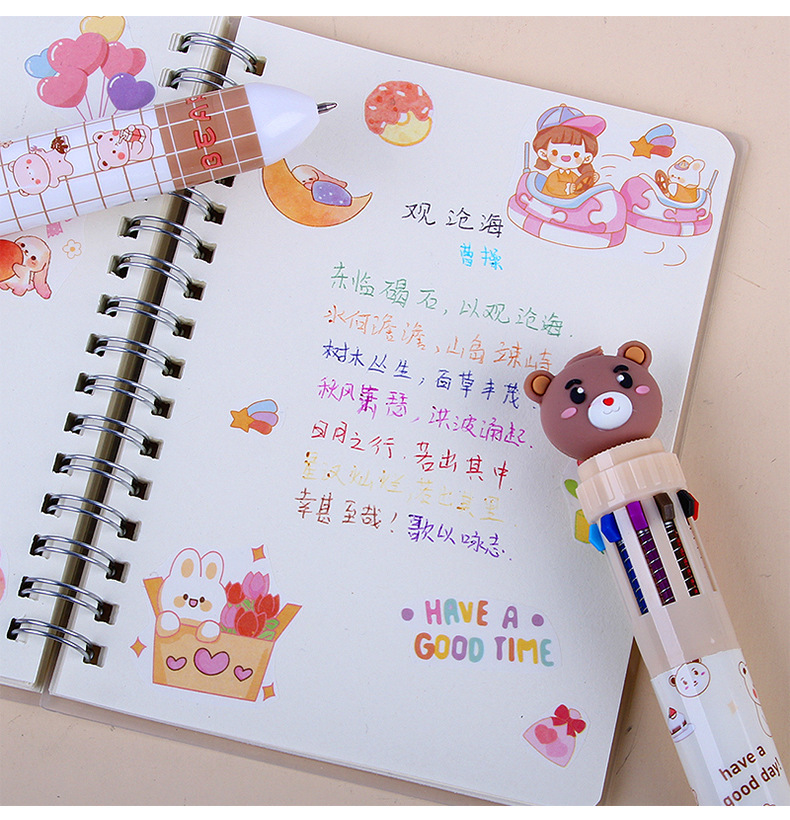 BEAR
观沧海
曹操
东临碣石，以观沧海.
水何澹澹，山岛竦峙
树木丛生，百草丰茂.
秋风萧瑟，洪波涌起.
日月之行，若出其中.
星汉灿烂 若出其里
幸甚至哉！歌以咏志.
• HAVE A •
GOOD TIME
have a
good day!